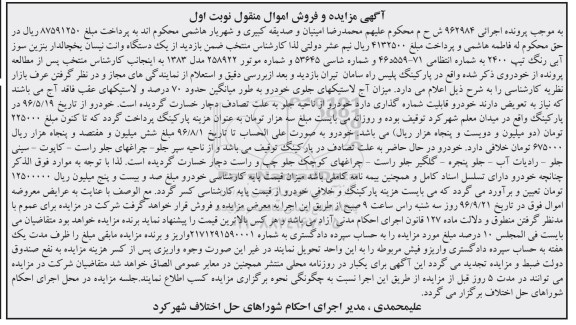 آگهی مزایده و فروش اموال منقول نوبت اول
به موجب پرونده اجرائی ۹۶۲۹۸۴ ش ح م محکوم علیهم محمدرضا امینیان و صدیقه کبیری و شهریار هاشمی محکوم اند به پرداخت مبلغ ۸۷۵۹۱۲۵۰ ریال در
حق محکوم له فاطمه هاشمی و پرداخت مبلغ ۴۱۳۲۵۰۰ ریال نیم عشر دولتی لذا کارشناس منتخب ضمن بازدید از یک دستگاه وانت نیسان یخچالدار بنزین سوز
آبی رنگ تیپ ۲۴۰۰ به شماره انتظامی ۷۱-۵۵۹د۴۶ و شماره شاسی ۵۳۶۴۵ و شماره موتور ۲۵۸۹۲۲ مدل ۱۳۸۳ به اینجانب کارشناس منتخب پس از مطالعه
پرونده از خودروی ذکر شده واقع در پارکینگ پلیس راه سامان تیران بازدید و بعد ازبررسی دقیق و استعلام از نمایندگی های مجاز و در نظر گرفتن عرف بازار
نظریه کارشناسی را به شرح ذیل اعلام می دارد. میزان آج لاستیکهای جلوی خودرو به طور میانگین حدود ۷۰ درصد و لاستیکهای عقب فاقد آج می باشند
که نیاز به تعویض دارند خودرو قابلیت شماره گذاری دارد خودرو از ناحیه جلو به علت تصادف دچار خسارت گردیده است. خودرو از تاریخ ۹۶/۵/۱۹ در
پارکینگ واقع در میدان معلم شهرکرد توقیف بوده و روزانه می بایست مبلغ سه هزار تومان به عنوان هزینه پارکینگ پرداخت گردد که تا کنون مبلغ ۲۲۵۰۰۰
تومان (دو میلیون و دویست و پنجاه هزار ریال) می باشد. خودرو به صورت علی الحساب تا تاریخ ۹۶/۸/۱ مبلغ شش میلیون و هفتصد و پنجاه هزار ریال
۶۷۵۰۰۰ تومان خلافی دارد. خودرو در حال حاضر به علت تصادف در پارکینگ توقیف می باشد و از ناحیه سپر جلو- چراغهای جلو راست - کاپوت - سینی
جلو - رادیات آب - جلو پنجره - گلگیر جلو راست - چراغهای کوچک جلو چپ و راست دچار خسارت گردیده است. لذا با توجه به موارد فوق الذکر
چنانچه خودرو دارای تسلسل اسناد کامل و همچنین بیمه نامه کامل باشد میزان قیمت پایه کارشناسی خودرو مبلغ صد و بیست و پنج میلیون ریال ۱۲۵۰۰۰۰۰
تومان تعیین و برآورد می گردد که می بایست هزینه پارکینگ و خلافی خودرو از قیمت پایه کارشناسی کسر گردد. مع الوصف با عنایت به عرایض معروضه
اموال فوق در تاریخ ۹۶/۹/۲۱ روز سه شنبه راس ساعت ۹ صبح از طریق این اجراء به معرض مزایده و فروش قرار خواهد گرفت شرکت در مزایده برای عموم با
مدنظر گرفتن منطوق و دلالت ماده ۱۲۷ قانون اجرای احکام مدنی آزاد می باشد و هر کس بالاترین قیمت را پیشنهاد نماید برنده مزایده خواهد بود متقاضیان می
بایست فی المجلس ۱۰ درصد مبلغ مورد مزایده را به حساب سپرده دادگستری به شماره ۲۱۷۱۲۹۱۵۹۰۰۰۱واریز و برنده مزایده مابقی مبلغ را ظرف مدت یک
هفته به حساب سپرده دادگستری واریزو فیش مربوطه را به این واحد تحویل نمایند در غیر این صورت وجوه واریزی پس از کسر هزینه مزایده به نفع صندوق
دولت ضبط و مزایده تجدید می گردد این آگهی برای یکبار در روزنامه محلی منتشر همچنین در معابر عمومی الصاق خواهد شد متقاضیان شرکت در مزایده
می توانند در مدت ۵ روز قبل از مزایده از طریق این اجرا نسبت به چگونگی نحوه برگزاری مزایده کسب اطلاع نمایند.جلسه مزایده در محل اجرای احکام
شوراهای حل اختلاف برگزار می گردد.
علیمحمدی ، مدیر اجرای احکام شوراهای حل اختلاف شهرکرد